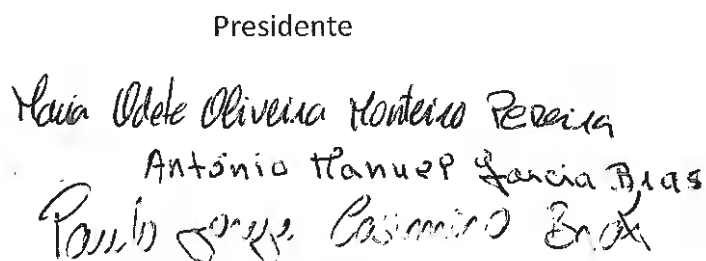 Presidente
Maria Odete Oliveira Monteiro Pereira
António Manuel Garcia Brás
Paulo Jorge Casimiro